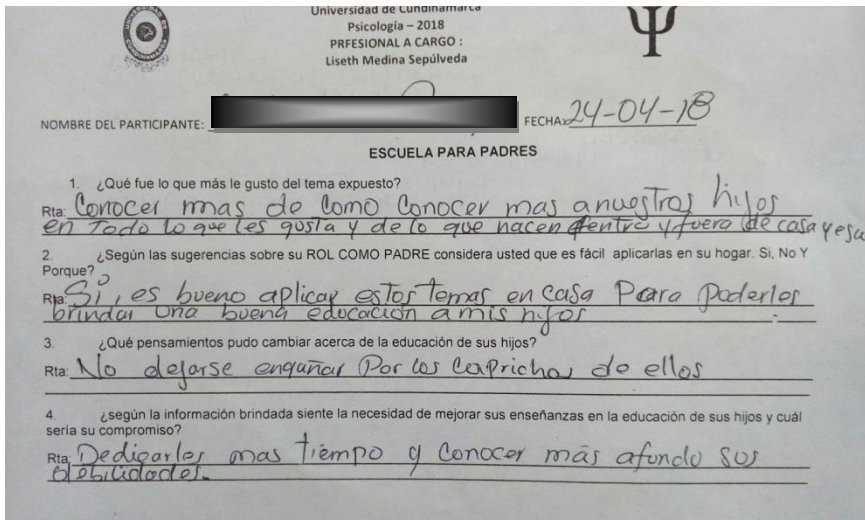 Universidad de Cundinamarca
Psicología – 2018
PRFESIONAL A CARGO :
Liseth Medina Sepúlveda
NOMBRE DEL PARTICIPANTE: FECHA: 24-04-18
ESCUELA PARA PADRES
1. ¿Qué fue lo que más le gusto del tema expuesto?
Rta: Conocer mas de como Conocer mas anuestros hijos
en Todo lo que les gusta y de lo que hacen dentro y fuera de casa y
2. ¿Según las sugerencias sobre su ROL COMO PADRE considera usted que es fácil aplicarlas en su hogar. Si, No Y
Porque?
Rta: Si, es bueno aplicar estos temas en casa Para Poderles
brindar una buena educación a mis hijos
3. ¿Qué pensamientos pudo cambiar acerca de la educación de sus hijos?
Rta: No dejarse engañar Por los Caprichos de ellos
4. ¿según la información brindada siente la necesidad de mejorar sus enseñanzas en la educación de sus hijos y cuál
seria su compromiso?
Rta: Dedicarles mas tiempo y Conocer más afondo sus
debilidades.